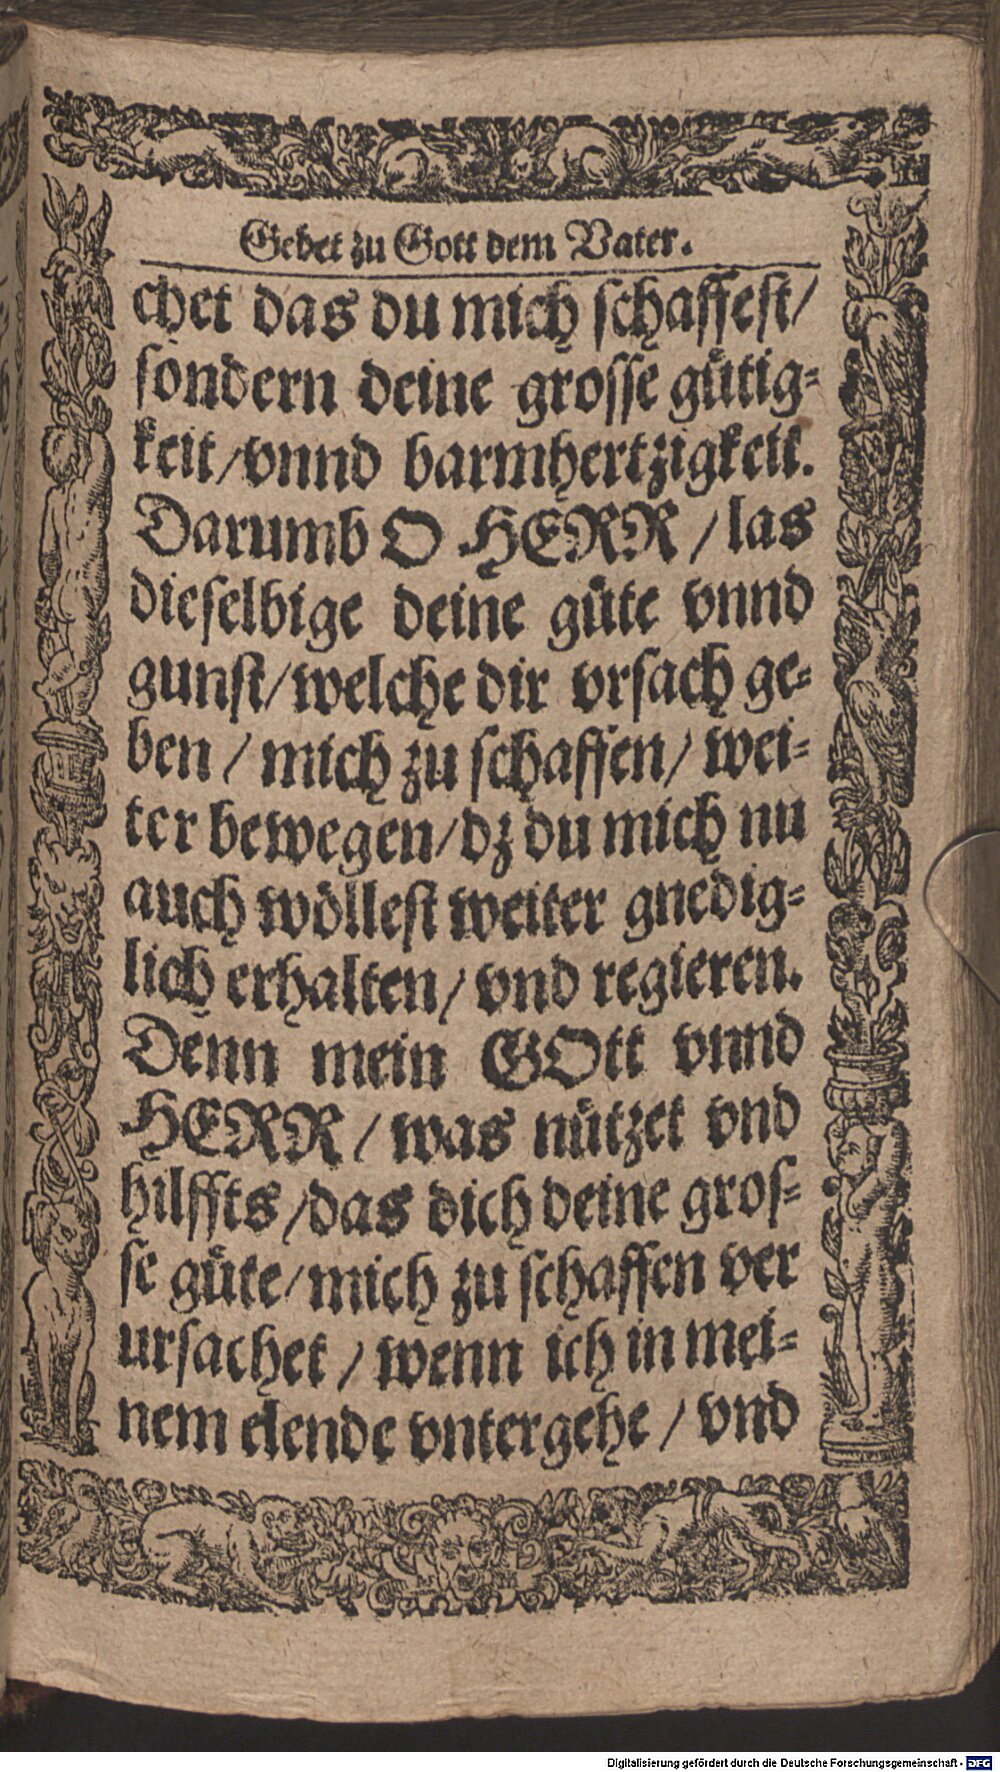 Gebet zu Gott dem Vater.
chet das du mich schaffest/
sondern deine grosse gütig-
keit/vnnd barmhertzigkeit.
Darumb O HERR /las
dieselbige deine güte vnnd
gunst/welche dir vrsach ge-
ben / mich zu schaffen/ wei-
ter bewegen/dz du mich nu
auch wöllest weiter gnedig-
lich erhalten/ vnd regieren.
Denn mein GOtt vnnd
HERR / was nützet vnd
hilffts /das dich deine gros-
se güte/mich zu schaffen ver
ursachet / wenn ich in mei-
nem elende vntergehe / vnd
Digitalisierung gefördert durch die Deutsche Forschungsgemeinschaft - DFG